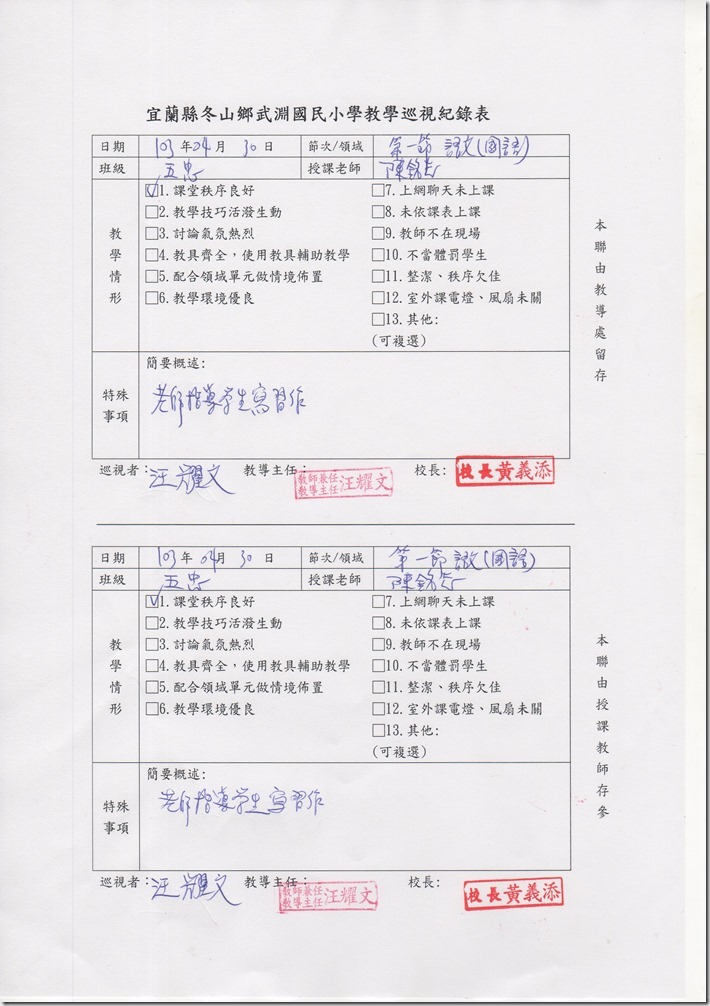 宜蘭縣冬山鄉武淵國民小學教學巡視紀錄表
日期 103 年 04 月 30 日 節次/領域 第一節 語文(國語)
班級 五忠 授課老師 陳銘志
教學情形
1. 課堂秩序良好 7. 上網聊天未上課
2. 教學技巧活潑生動 8. 未依課表上課
3. 討論氣氛熱烈 9. 教師不在現場
4. 教具齊全，使用教具輔助教學 10. 不當體罰學生
5. 配合領域單元做情境佈置 11. 整潔、秩序欠佳
6. 教學環境優良 12. 室外課電燈、風扇未關
13. 其他:
(可複選)
特殊事項
簡要概述:
老師指導學生寫習作
巡視者: 汪耀文 教導主任: 教師兼任教導主任 汪耀文 校長: 校長黃義添
本聯由教導處留存
日期 103 年 04 月 30 日 節次/領域 第一節 語文(國語)
班級 五忠 授課老師 陳銘志
教學情形
1. 課堂秩序良好 7. 上網聊天未上課
2. 教學技巧活潑生動 8. 未依課表上課
3. 討論氣氛熱烈 9. 教師不在現場
4. 教具齊全，使用教具輔助教學 10. 不當體罰學生
5. 配合領域單元做情境佈置 11. 整潔、秩序欠佳
6. 教學環境優良 12. 室外課電燈、風扇未關
13. 其他:
(可複選)
特殊事項
簡要概述:
老師指導學生寫習作
巡視者: 汪耀文 教導主任: 教師兼任教導主任 汪耀文 校長: 校長黃義添
本聯由授課教師存參